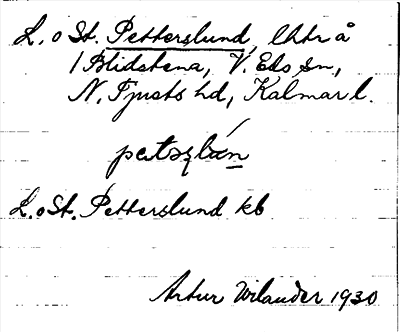 L. o St. Petterslund, lht å
1 Blidstena, V. Eds sn,
N. Tjusts hd, Kalmar l.
L. o St. Petterslund kb
Artur Wilander 1930